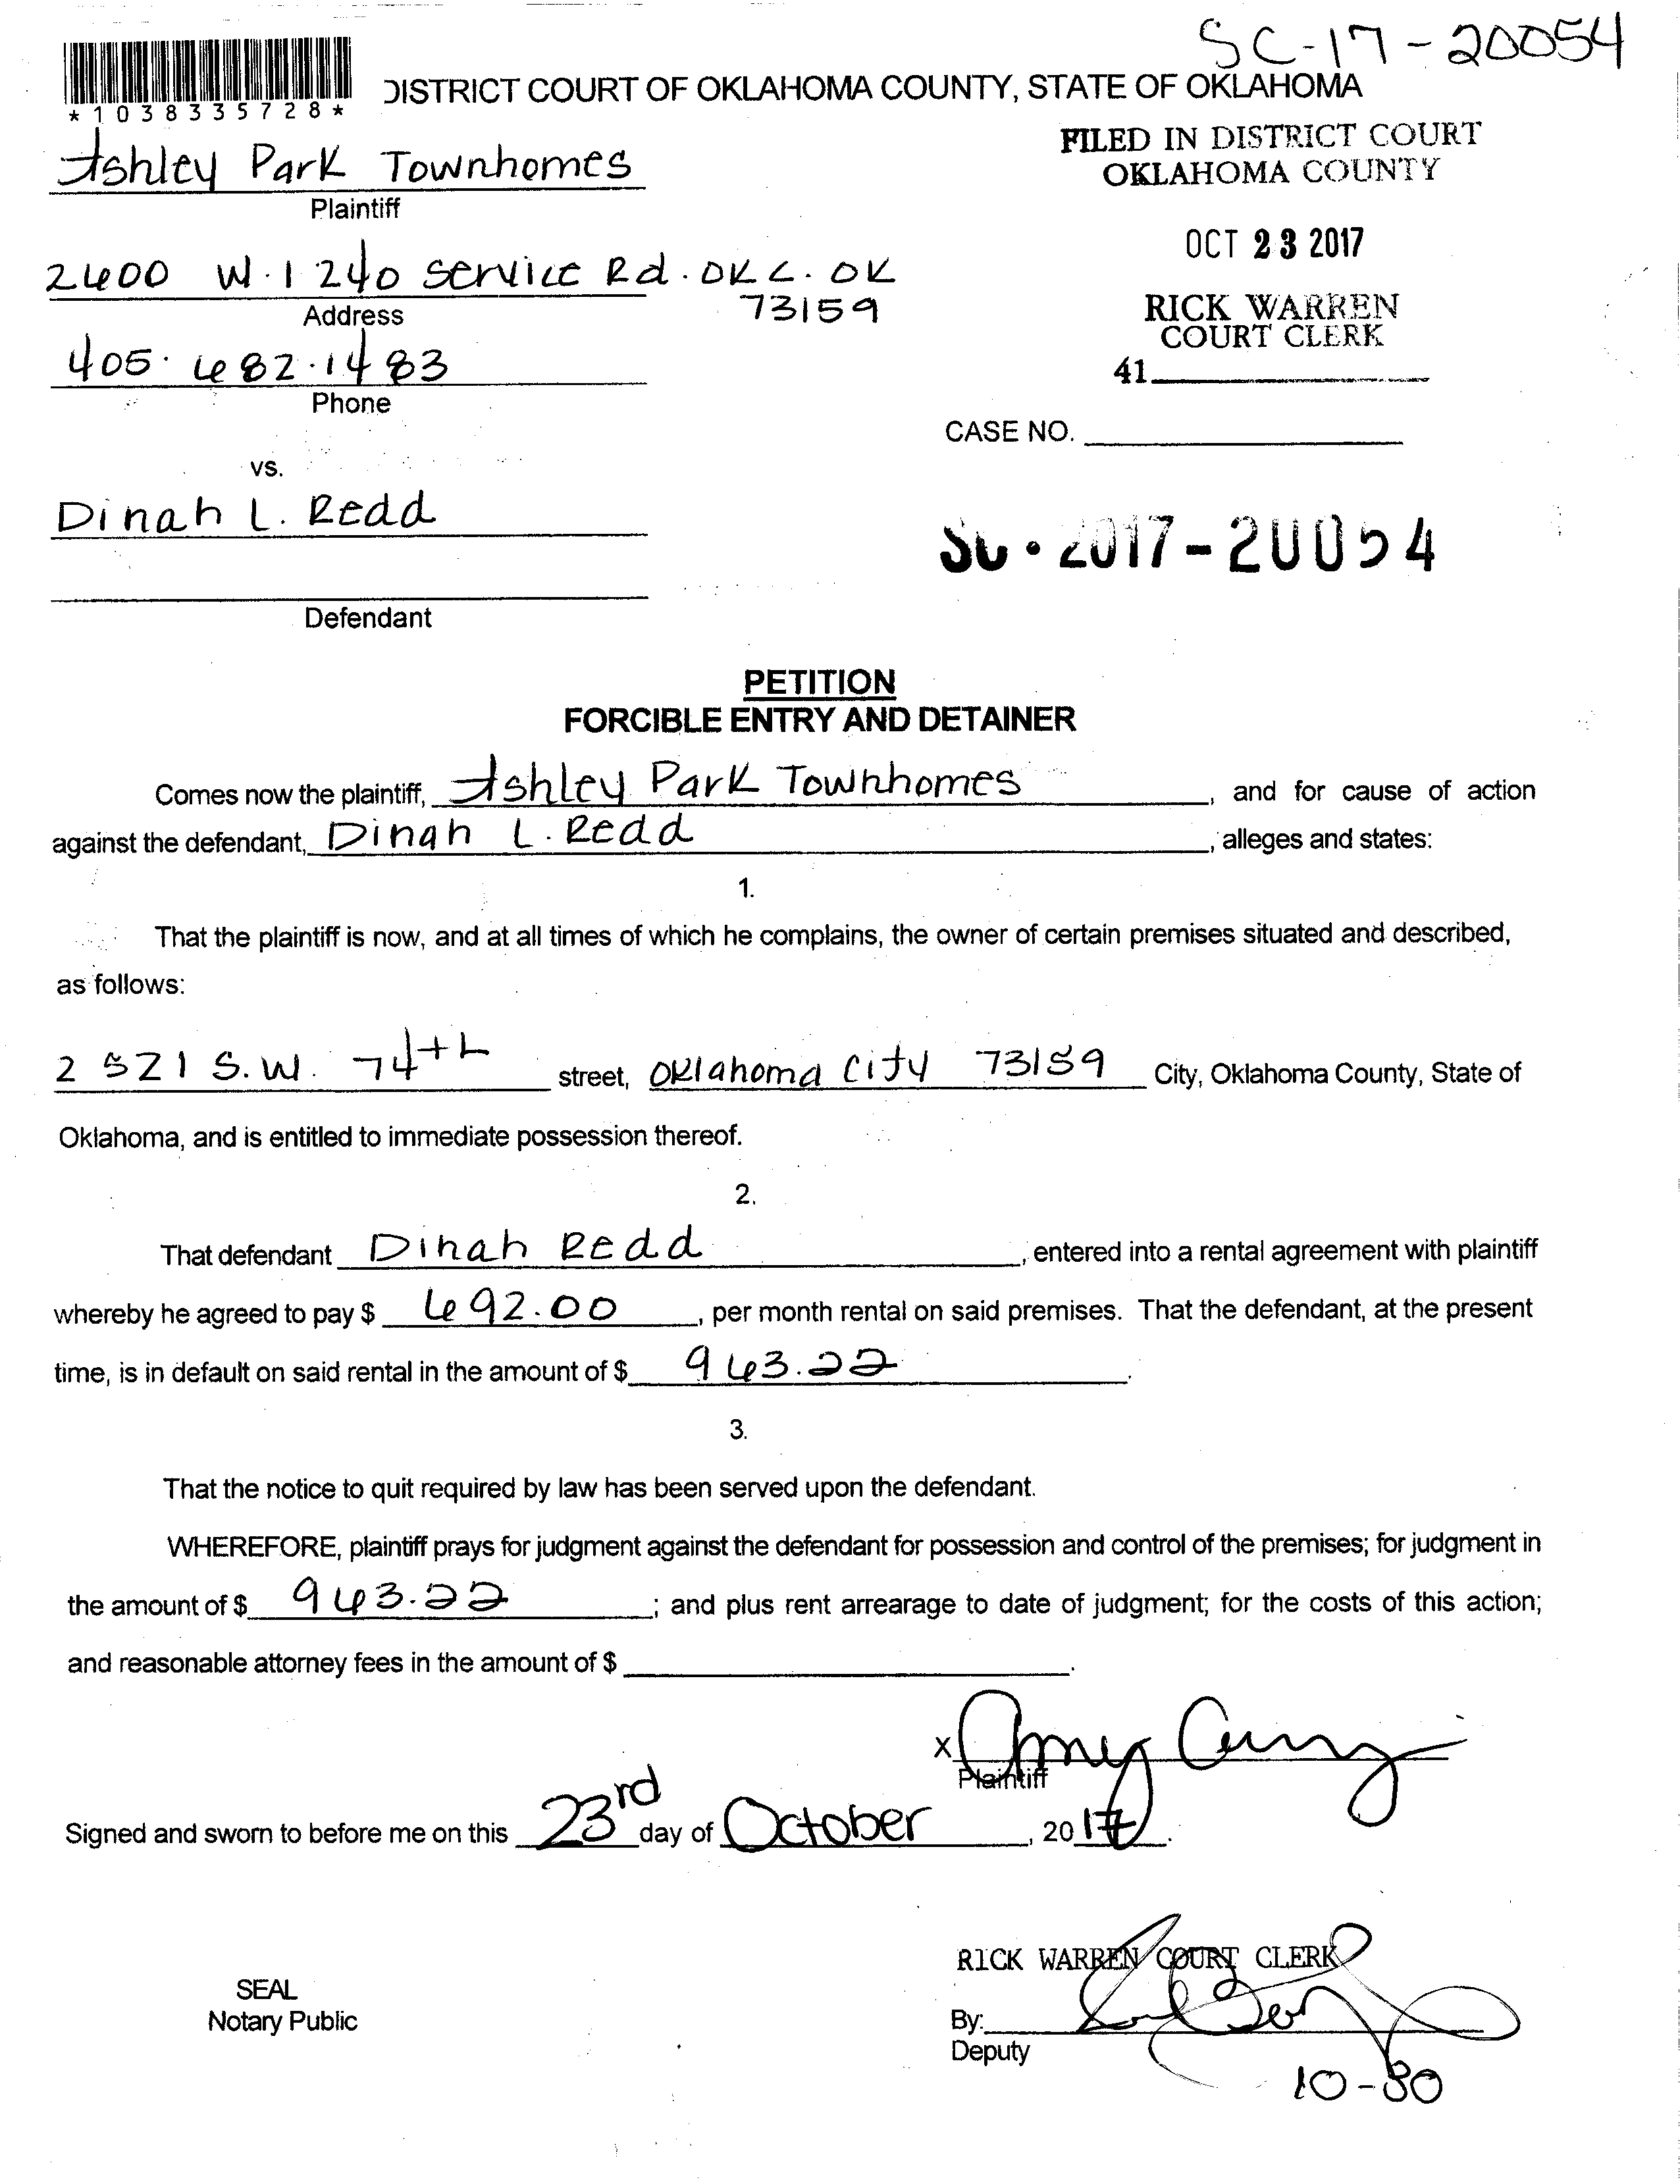 SC-17-20054
*1038335728*
DISTRICT COURT OF OKLAHOMA COUNTY, STATE OF OKLAHOMA
Ashley Park Townhomes
Plaintiff
FILED IN DISTRICT COURT
OKLAHOMA COUNTY
OCT 23 2017
RICK WARREN
COURT CLERK
41
2600 W. I 240 Service Rd. OKC. OK
73159
Address
405.682.1483
Phone
CASE NO.
vs.
Dinah L. Redd
SC-2017-20054
Defendant
PETITION
FORCIBLE ENTRY AND DETAINER
Comes now the plaintiff, Ashley Park Townhomes, and for cause of action
against the defendant, Dinah L. Redd, alleges and states:
1.
That the plaintiff is now, and at all times of which he complains, the owner of certain premises situated and described,
as follows:
2521 S.W. 74th street, Oklahoma City 73159 City, Oklahoma County, State of
Oklahoma, and is entitled to immediate possession thereof.
2.
That defendant Dinah Redd, entered into a rental agreement with plaintiff
whereby he agreed to pay $ 692.00, per month rental on said premises. That the defendant, at the present
time, is in default on said rental in the amount of $ 963.22.
3.
That the notice to quit required by law has been served upon the defendant.
WHEREFORE, plaintiff prays for judgment against the defendant for possession and control of the premises; for judgment in
the amount of $ 963.22; and plus rent arrearage to date of judgment; for the costs of this action;
and reasonable attorney fees in the amount of $ .
X
Plaintiff
Signed and sworn to before me on this 23rd day of October, 2017.
RICK WARREN COURT CLERK
SEAL
Notary Public
By:
Deputy
10-30